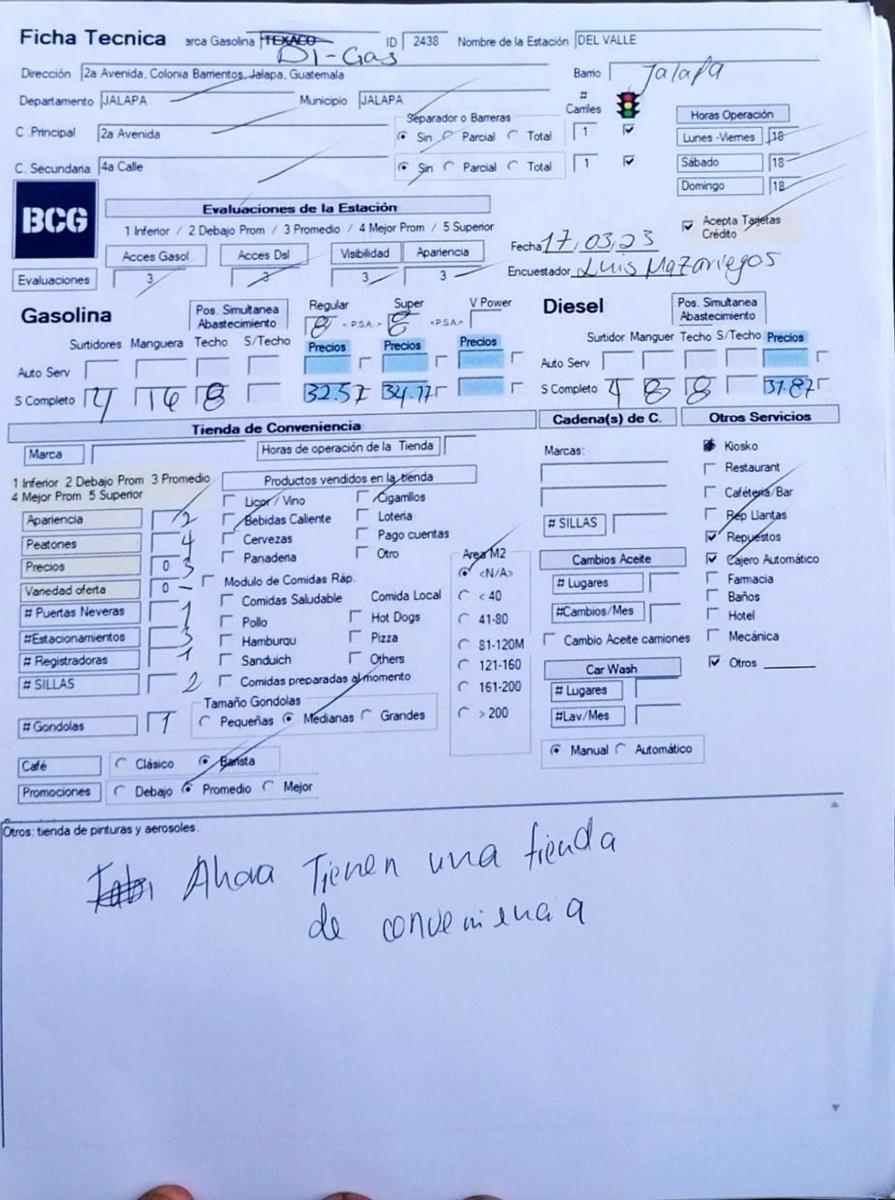 Ficha Tecnica arca Gasolina TEXACO ID 2438 Nombre de la Estación DEL VALLE
DI-Gas
Dirección 2a Avenida, Colonia Barrientos, Jalapa, Guatemala Barrio Jalapa
Departamento JALAPA Municipio JALAPA # Carriles Horas Operación
C .Principal 2a Avenida Separador o Barreras Sin Parcial Total 1 Lunes -Viernes 18
C. Secundaria 4a Calle Sin Parcial Total 1 Sábado 18
Domingo 18
BCG Evaluaciones de la Estación
1 Inferior / 2 Debajo Prom / 3 Promedio / 4 Mejor Prom / 5 Superior Acepta Tarjetas Crédito
Acces Gasol Acces Dsl Visibilidad Apariencia Fecha 17,03,23
Evaluaciones 3 3 3 3 Encuestador Luis Mazariegos
Gasolina Pos. Simultanea Abastecimiento Regular Super V Power Diesel Pos. Simultanea Abastecimiento
8 <P.S.A.> 8 <P.S.A.>
Surtidores Manguera Techo S/Techo Precios Precios Precios Surtidor Manguer Techo S/Techo Precios
Auto Serv Auto Serv
S Completo 4 16 8 32.57 34.77 S Completo 4 8 8 31.87
Tienda de Conveniencia Cadena(s) de C. Otros Servicios
Marca Horas de operación de la Tienda Marcas: Kiosko
1 Inferior 2 Debajo Prom 3 Promedio Productos vendidos en la tienda Restaurant
4 Mejor Prom 5 Superior Licor / Vino Cigarrillos Cafétería/Bar
Apariencia 2 Bebidas Caliente Loteria # SILLAS Rep Llantas
Peatones 4 Cervezas Pago cuentas Repuestos
Precios 0 3 Panaderia Otro Area M2 Cambios Aceite Cajero Automático
Variedad oferta 0 - Modulo de Comidas Ráp. <N/A> # Lugares Farmacia
# Puertas Neveras 1 Comidas Saludable Comida Local < 40 #Cambios/Mes Baños
#Estacionamientos 3 Pollo Hot Dogs 41-80 Hotel
# Registradoras 1 Hamburqu Pizza 81-120M Cambio Aceite camiones Mecánica
# SILLAS 2 Sanduich Others 121-160 Car Wash Otros
Comidas preparadas al momento 161-200 # Lugares
# Gondolas 1 Tamaño Gondolas Pequeñas Medianas Grandes > 200 #Lav/Mes
Café Clásico Barista Manual Automático
Promociones Debajo Promedio Mejor
Otros: tienda de pinturas y aerosoles.
Ahora Tienen una tienda
de conveniencia